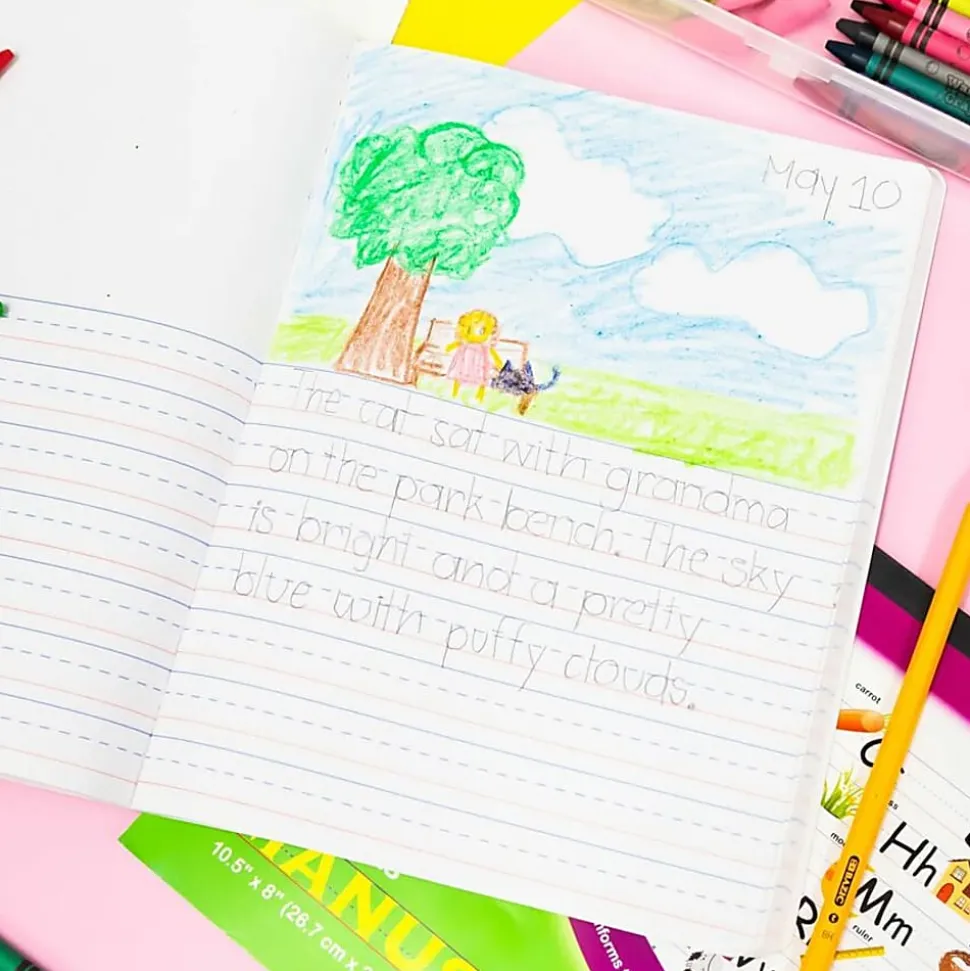 May 10
The cat sat with grandma
on the park bench. The sky
is bright and a pretty
blue with puffy clouds.
carrot
Hh
Mm
ruler
BAZIC
10.5" x 8" (26.7 cm x